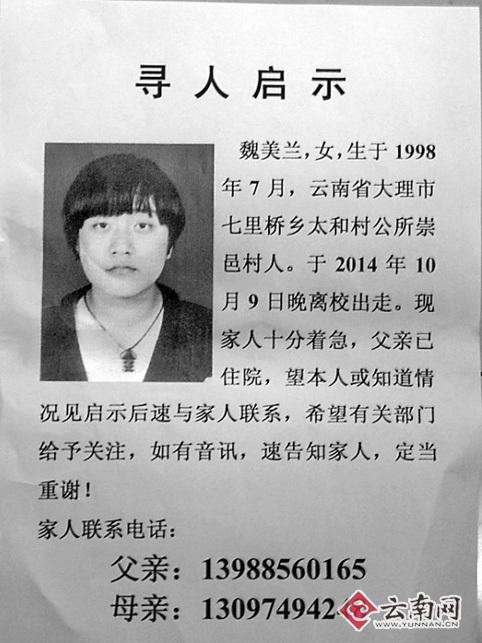 寻人启示
魏美兰，女，生于1998
年7月，云南省大理市
七里桥乡太和村公所崇
邑村人。于2014年10
月9日晚离校出走。现
家人十分着急，父亲已
住院，望本人或知道情
况见启示后速与家人联系，希望有关部门
给予关注，如有音讯，速告知家人，定当
重谢！
家人联系电话：
父亲：13988560165
母亲：130974942
云南网
WWW.YUNNAN.CN